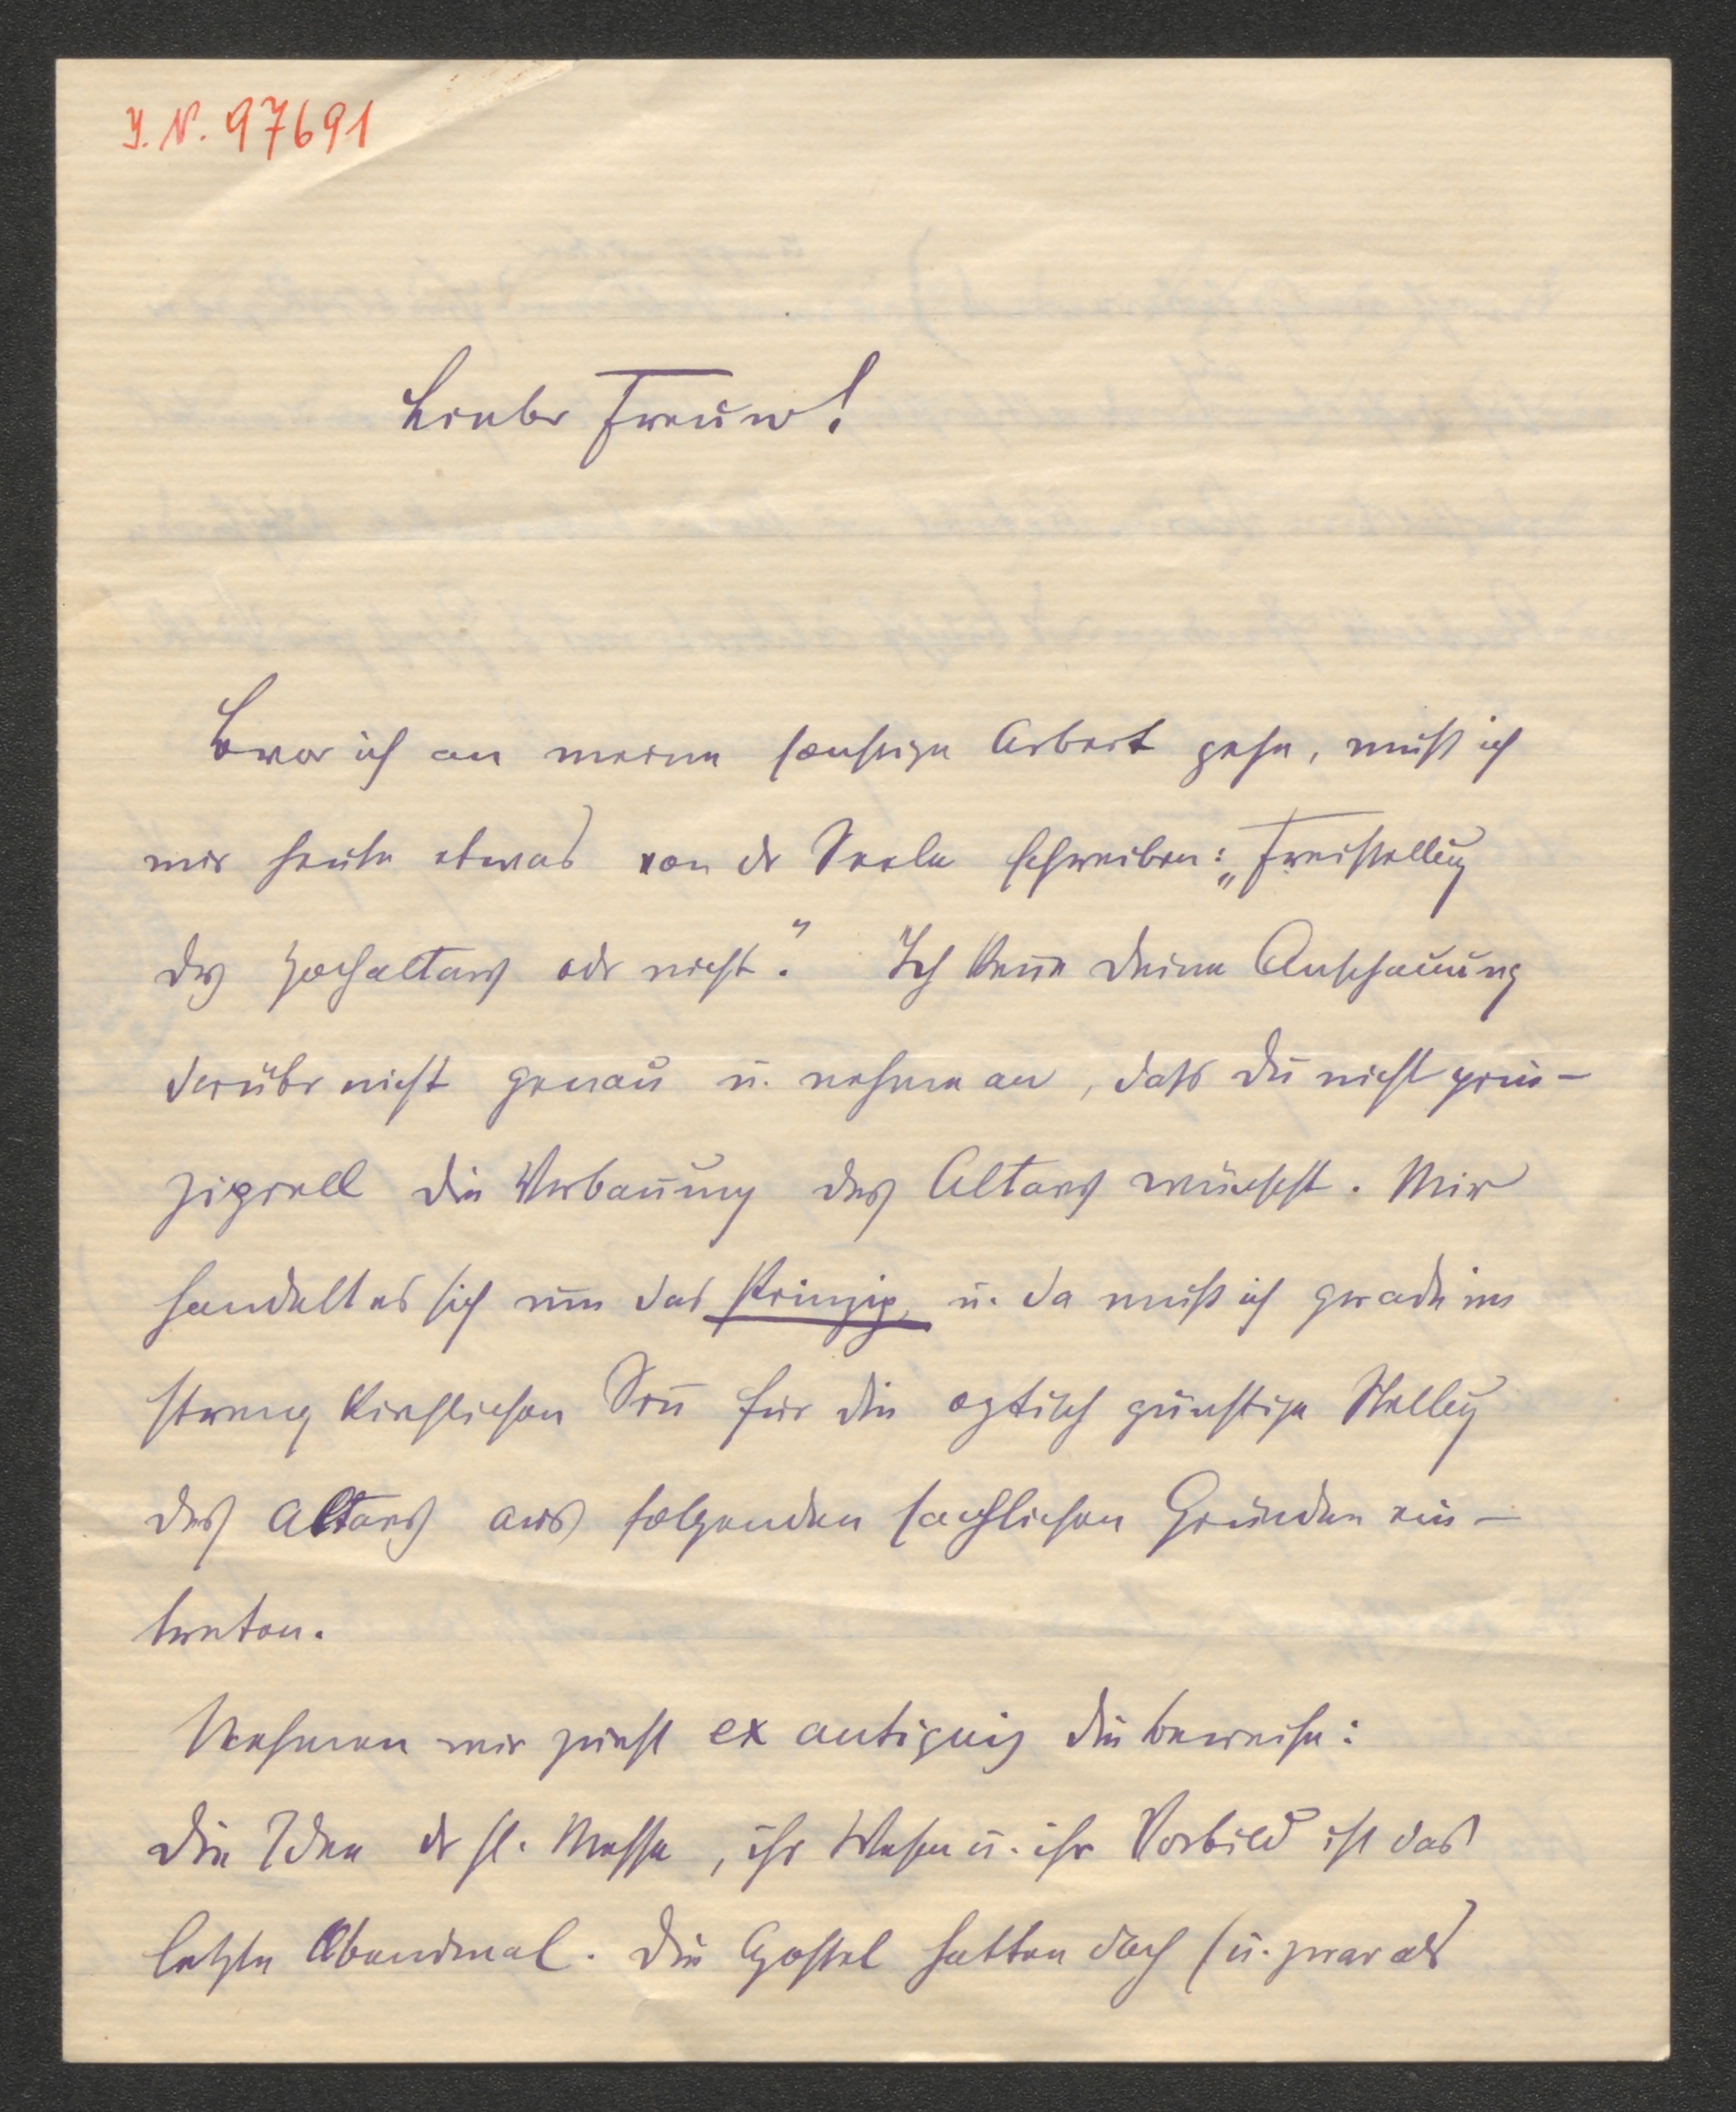 J. N. 97691
Lieber Freund!
Bevor ich an meine sonstige Arbeit gehe, muß ich
mir heute etwas von der Seele schreiben: „Freistellung
des Hochaltars oder nicht.“ Ich kenne Deine Anschauung
darüber nicht genau u. nehme an, daß Du nicht prin-
zipiell die Verbauung des Altars wünschst. Mir
handelt es sich um das Prinzip, u. da muß ich gerade im
streng kirchlichen Sinn für die optisch günstige Stellung
des Altars aus folgenden sachlichen Gründen ein-
treten.
Nehmen wir zuerst ex antiquis die Beweise:
Die Idee der hl. Messe, ihr Wesen u. ihr Vorbild ist das
letzte Abendmal. Die Apostel hatten doch (u. zwar als